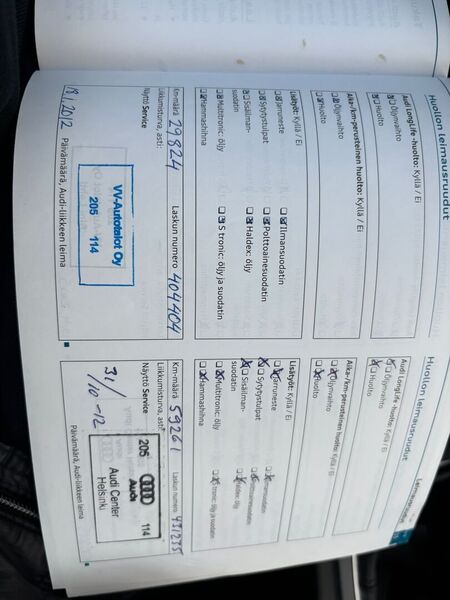 Huollon leimausruudut
Audi LongLife -huolto: Kyllä / Ei
Öljynvaihto
Huolto
Aika-/km-perusteinen huolto: Kyllä / Ei
Öljynvaihto
Huolto
Lisätyöt: Kyllä / Ei
Jarruneste
Ilmansuodatin
Sytytystulpat
Polttoainesuodatin
Sisäilman-
suodatin
Haldex: öljy
Multitronic: öljy
S tronic: öljy ja suodatin
Hammashihna
Km-määrä 19824
Laskun numero 404404
Liikkumisturva, asti:
Näyttö Service
VV-Autotalot Oy
205 114
18.1.2012
Päivämäärä, Audi-liikkeen leima
Huollon leimausruudut
Audi LongLife -huolto: Kyllä / Ei
Öljynvaihto
Huolto
Aika-/km-perusteinen huolto: Kyllä / Ei
Öljynvaihto
Huolto
Lisätyöt: Kyllä / Ei
Jarruneste
Sytytystulpat
Sisäilman-
suodatin
Haldex: öljy
Multitronic: öljy
S tronic: öljy ja suodatin
Hammashihna
Km-määrä 59261
Laskun numero 431235
Liikkumisturva, asti:
Näyttö Service
205 114
Audi
Audi Center
Helsinki
31/
/10 -12
Päivämäärä, Audi-liikkeen leima